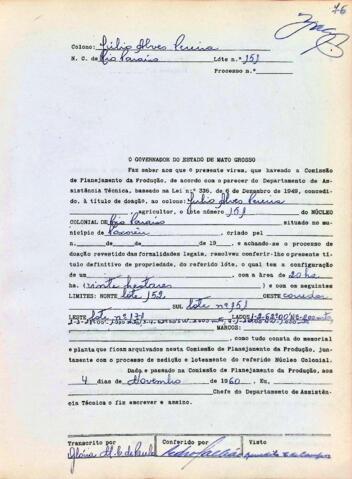 76
Colono: Júlio Alves Pereira
N. C. de Rio Paraíso Lóte n.º 151
Processo n.º
O GOVERNADOR DO ESTADO DE MATO GROSSO
Faz saber aos que o presente virem, que havendo a Comissão
de Planejamento da Produção, de acordo com o parecer do Departamento de As-
sistência Técnica, baseado na Lei n.º 336, de 6 de Dezembro de 1949, concedi-
do, à título de doação, ao colono: Júlio Alves Pereira
agricultor, o lote número 151 do NÚCLEO
COLONIAL DE Rio Paraíso situado no mu-
nicípio de Poxoréu, criado pel
n. de de de 19 , e achando-se o processo de
doação revestido das formalidades legais, resolveu conferir-lhe o presente tí-
tulo definitivo de propriedade, do referido lóte, o qual tem a configuração
de um com a área de 20 ha.
ha. (vinte hectares) e com os seguintes
LIMITES: NORTE lote 152 OESTE corredor
SUL lote nº 151
LESTE lote nº 171 LADOS
MARCOS:
, como tudo consta do memorial
e planta que ficam arquivados nesta Comissão de Planejamento da Produção, jun-
tamente com o processo de medição e loteamento do referido Núcleo Colonial.
Dada e passada na Comissão de Planejamento da Produção, aos
4 dias de Novembro de 1960. Eu,
Chefe do Departamento de Assistên-
cia Técnica o fiz escrever e assino.
Transcrito por Conferido por Visto
Glória M. C. de Paula